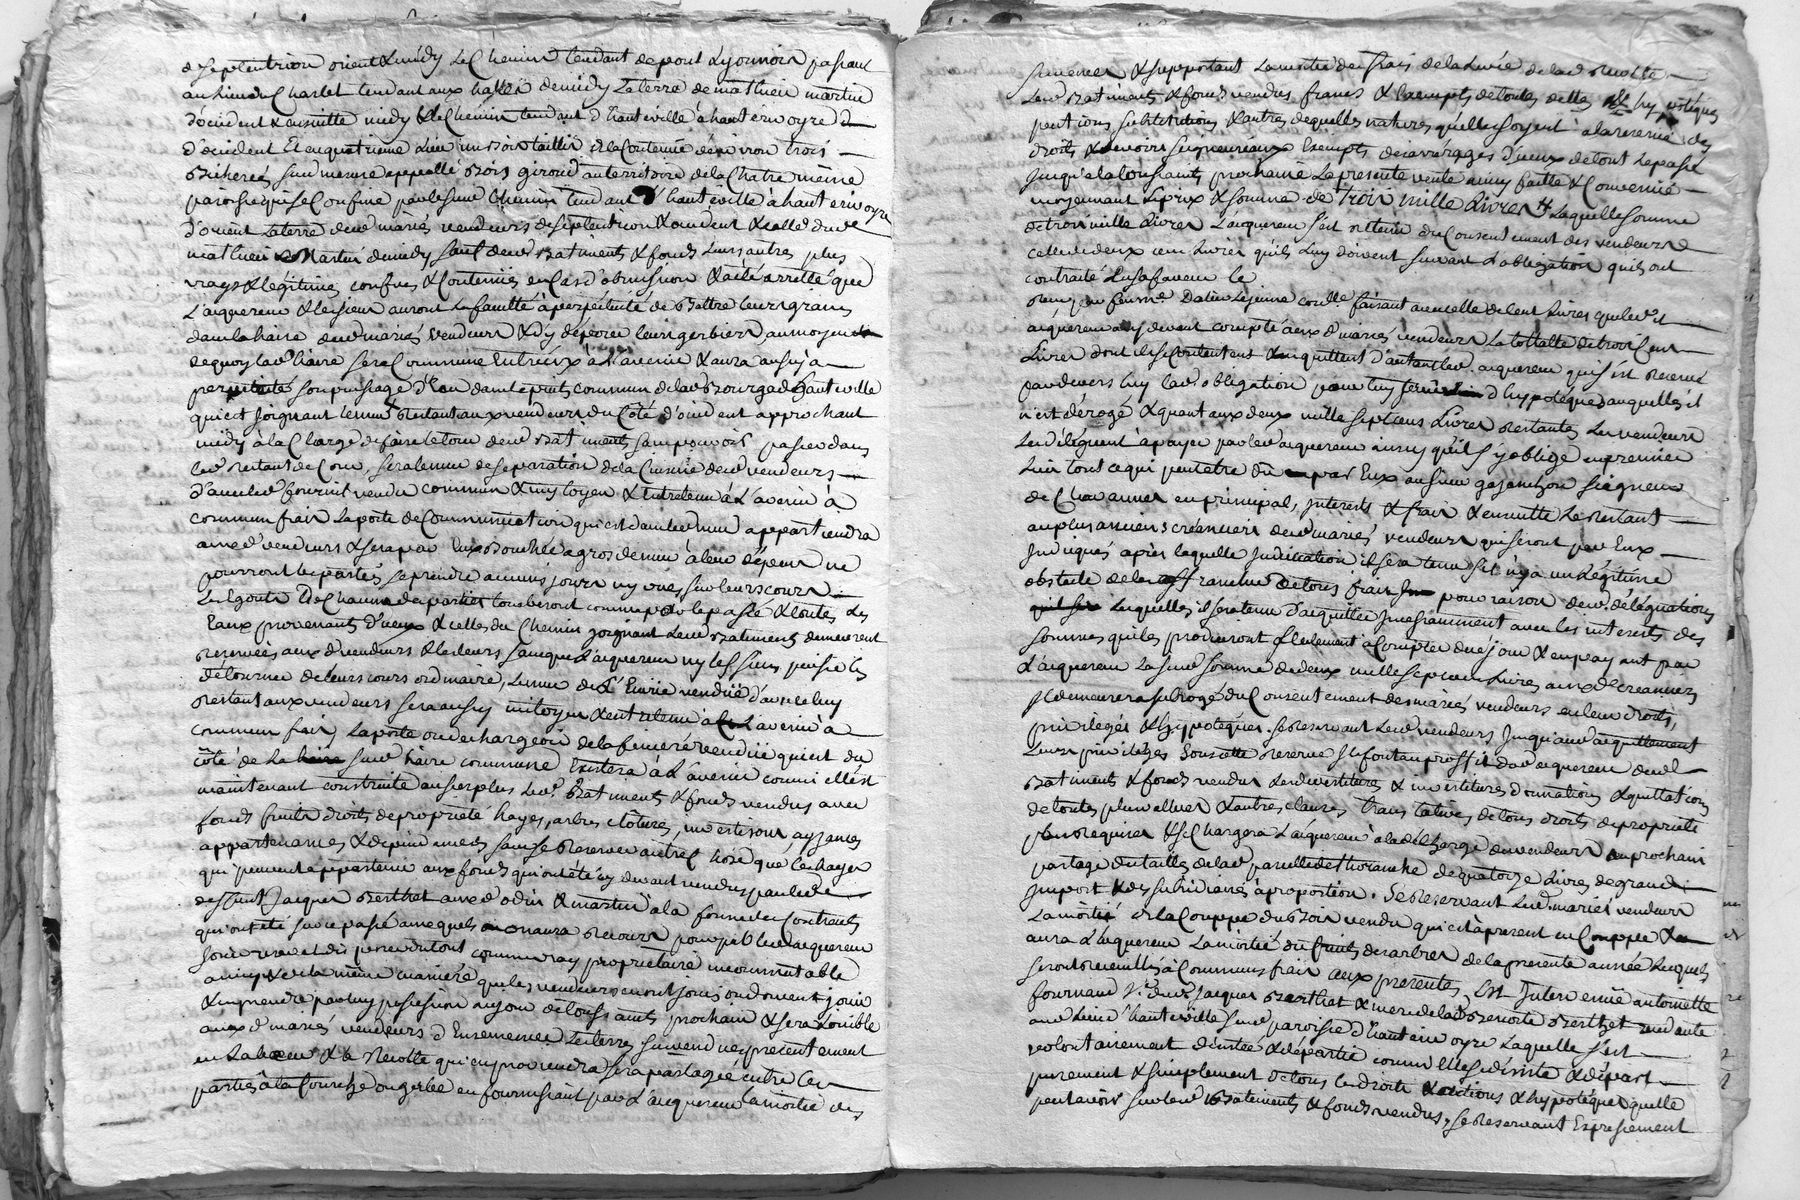 de septentrion orient & midy Le Chemin tendant de pont Lyonnois passant
au lieu du Charlet tendant aux halles de midy La terre de mathieu martin
d'occident & ensuitte midy & Le Chemin tendant d'hauteville à hauterivoyre
d'occident Et en quatrieme Lieu un bois taillis de la Contenue d'environ trois
Bicherées sud. mesure appellé Bois giroud au territoire de la Chatre meme
paroisse qui se Confine par le sud. Chemin tendant d'hauteville à hauterivoyre
d'orient La terre desd. mariés vendeurs de septentrion & occident & celle dud.
mathieu Martin de midy sauf desd. Batiments & fonds Leurs autres plus
vrays & légitimes confins & Contenües en Cas d'obmission & a été arretté que
L'aquereur & les siens auront La faculté à perpétuité de Battre leurs grains
dans la haire desd. mariés vendeurs & d'y déposer leurs gerbiers au moyen
de quoy lad. haire sera Commune Entreeux à L'avenir & aura aussy à
perpétuité son puisage d'eau dans le puits commun de lad. Bourgade d'hauteville
qui est joignant le mur Restant aux vendeurs du Côté d'occident approchant
midy à la Charge de faire le tour desd. Batiments sans pouvoir passer dans
lad. Restant de Cour, sera le mur de separation de la Cuisine desd. vendeurs
d'avec led. fournil vendu commun & mytoyen & Entretenu à L'avenir à
commun frais La porte de Communication qui est dans led. mur appartiendra
auxd. vendeurs & sera par Eux Bouchée a gros de mur à leur dépens ne
pourront les parties se prendre aucuns jours ny vues sur leurs cours
Les Egouts De Chacune des parties tomberont comme par le passé & toutes Les
Eaux provenants d'iceux & celles du Chemin joignant Lesd. Batiments demeurent
reservées auxd. vendeurs & les leurs sans que L'aquereur ny les siens puisse les
détourner de leurs cours ordinaire, Le mur de L'Ecurie vendüe d'avec le leur
Restant aux vendeurs sera aussy mitoyen & entretenu à L'avenir à
commun frais, La porte ou dechargeoir de la feniere vendüe qui est du
côté de La sud. haire commune Existera à L'avenir comme elle est
maintenant construite au surplus Lesd. Batiments & fonds vendus avec
fonds fruits droits de propriété hayes, arbres clotures, aysances
appartenances & dépendances sans se Reserver autre Chose que Les hayes
qui peuvent appartenir aux fonds qui ont été cy devant vendus par led.
deffunt Jacques Berthet auxd. odin & martin à la forme des Contrats
qui ont été sur ce passé auxquels on aura Recours pour par led. aquereur
jouir user et disposer du tout comme vray proprietaire incommutable
ainsy & de la même manière que les vendeurs en ont jouis ou dû en jouir
& en prendre par luy possession au jour de toussaints prochain & sera Loisible
auxd. mariés vendeurs d'Ensemencer Les terres sus vendues presentement
en Labeur & la Recolte qui en proviendra sera partagée entre Les
parties à la Courche ou gerbe en fournissant par L'aquereur la moitié des
semences & supportant La moitié des frais de la Levée de lad. Recolte
Lesd. Batiments & fonds vendus francs & Exempts de toutes dettes hypoteques
pentions substitutions & autres de quelles natures qu'elles soyent à la reserve des
droits & devoirs seigneuriaux Exempts des arrérages d'iceux de tout Le passé
jusqu'à la toussaints prochaine La presente vente ainsy faitte & Convenüe
moyennant Le prix & somme de trois mille Livres Laquelle somme
de trois mille Livres L'aquereur s'est retenu du Consentement des vendeurs
celle de deux cens Livres qu'ils luy doivent suivant L'obligation qu'ils ont
contracté à sa faveur le
Reçue par faurne. Datier Lejeune cons.lle faisant avec celle de cent Livres que led.
aquereur a cy devant compté auxd. mariés vendeurs La tottalle de trois Cens
Livres dont ils se Contentent & en quittent d'autant led. aquereur qui s'est Reservé
par devers luy lad. obligation pour luy servir d'hypoteque auquelles il
n'est dérogé & quant aux deux mille septcens Livres Restantes Les vendeurs
Les délèguent à payer par led. aquereur ainsy qu'il s'y oblige en premier
Lieu tout ce qui peut être dû par Eux au sieur gajanchon seigneur
de Chavannes en principal, Interets & frais & ensuitte Le Restant
au plus anciens créanciers desd. mariés vendeurs qui seront par Eux
Indiqués après laquelle Indication il sera tenu s'il n'y a un Légitime
obstacle de les affranchir de tous frais pour raison desd. délégations
Lesquelles il sera tenu d'acquitter Incessamment avec les interets des
sommes qu'ils produiront seulement à Compter de ce jour & en payant par
L'aquereur La sud. somme de deux mille septcens Livres auxd. créanciers
Il demeurera subrogé du Consentement des mariés vendeurs en leur droits,
privileges & hypoteques. se Reservant Lesd. vendeurs Jusqu'aud. acquittement
Leurs privileges Sous cette Reserve Ils font au proffit dud. aquereur desd.
Batiments & fonds vendus Les devestitures & investitures donnations & quittations
de toutes plus values & autres clauses translatives de tous droits de propriété
& se Chargera L'aquereur à la décharge des vendeurs au prochain
partage de tailles de lad. parcelle de Thoranche de quatorze Livres de grand
Import & des subsidiaires à proportion. Se Reservant Lesd. mariés vendeurs
La moitié de la Couppe du Bois vendu qui est à present en Couppe &
aura L'aquereur La moitié du fruits des arbres de la presente année Lesquels
seront recueillis à Communs frais aux presentes, Est Intervenüe antoinette
fournaud V.e dud. Jacques Berthet & mere de lad. Benoite Berthet residante
aud. Lieu d'hauteville sud. paroisse d'hauterivoyre Laquelle s'est
volontairement désistée & départie comme Elle se désiste & départ
purement & simplement de tous les droits & actions & hypoteques quelle
peut avoir sur lesd. Batiments & fonds vendus, se Reservant Expressement